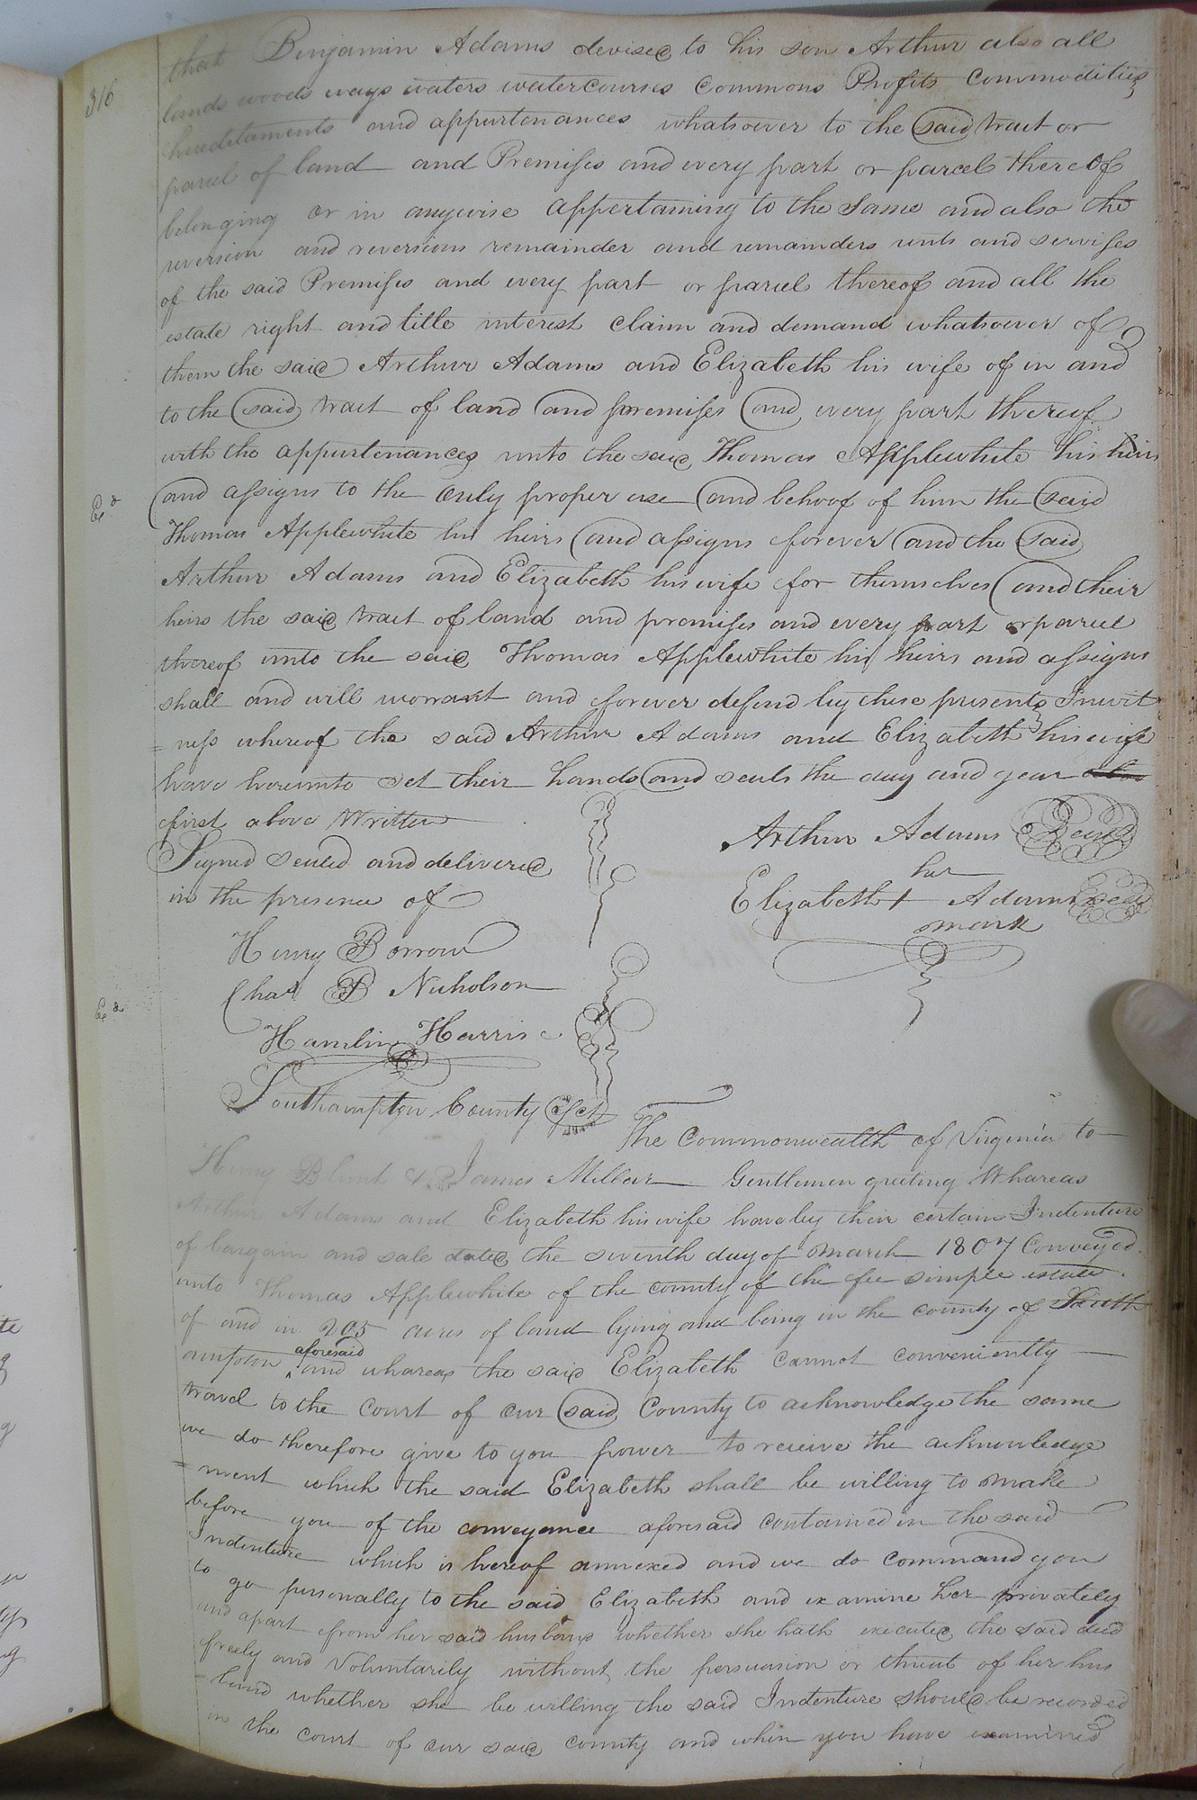 316
that Benjamin Adams devised to his son Arthur also all
lands woods ways waters watercourses Commons Profits Commodities
hereditaments and appurtenances whatsoever to the said tract or
parcel of land and Premises and every part or parcel thereof
belonging or in anywise appertaining to the same and also the
reversion and reversions remainder and remainders rents and servises
of the said Premises and every part or parcel thereof and all the
estate right and title interest claim and demand whatsoever of
them the said Arthur Adams and Elizabeth his wife of in and
to the said tract of land and premises and every part thereof
with the appurtenances unto the said Thomas Applewhite his heirs
and assigns to the only proper use and behoof of him the said
Thomas Applewhite his heirs and assigns forever and the said
Arthur Adams and Elizabeth his wife for themselves and their
heirs the said tract of land and premises and every part or parcel
thereof unto the said Thomas Applewhite his heirs and assigns
shall and will warrant and forever defend by these presents In wit
= ness whereof the said Arthur Adams and Elizabeth his wife
have hereunto set their hands and seals the day and year
first above Written
Signed sealed and delivered
in the presence of
Arthur Adams Seal
her
Elizabeth + Adams Seal
mark
Henry Borrow
Chas B Nicholson
Hamlin Harris
Southampton County Sct
The Commonwealth of Virginia to
Henry Blunt & James Millar Gentlemen greeting Whareas
Arthur Adams and Elizabeth his wife have by their certain Indenture
of bargain and sale dated the seventh day of March 1807 Conveyed
unto Thomas Applewhite of the county of the fee simple estate
of and in 205 acres of land lying and being in the county of South
ampton aforesaid and whareas the said Elizabeth cannot conveniently
travel to the Court of our said County to acknowledge the same
we do therefore give to you power to receive the acknowledge
= ment which the said Elizabeth shall be willing to make
before you of the conveyance aforesaid contained in the said
Indenture which is hereof annexed and we do command you
to go personally to the said Elizabeth and examine her privately
and apart from her said husband whether she hath executed the said deed
freely and Voluntarily without the persuasion or threat of her hus
= band whether she be willing the said Indenture should be recorded
in the court of our said county and when you have examined